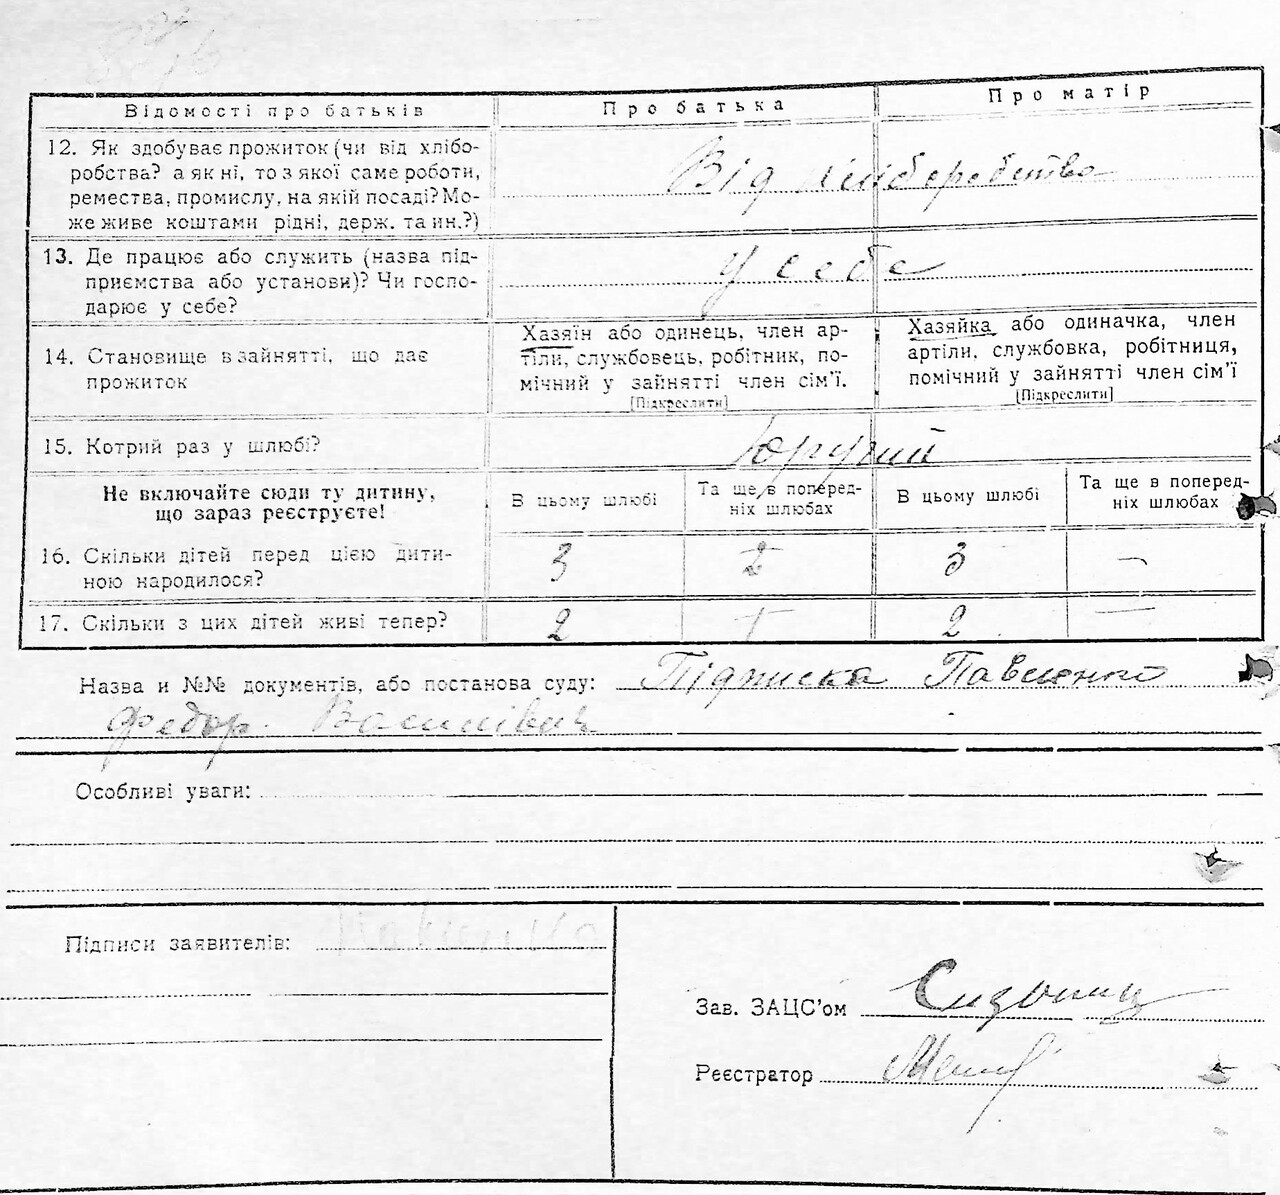 Відомості про батьків
Про батька
Про матір
12. Як здобуває прожиток (чи від хлібо-
робства? а як ні, то з якої саме роботи,
ремества, промислу, на якій посаді? Мо-
же живе коштами рідні, держ. та ин.?)
Від хліборобства
13. Де працює або служить (назва під-
приємства або установи)? Чи госпо-
дарює у себе?
у себе
14. Становище в зайнятті, що дає
прожиток
Хазяїн або одинець, член ар-
тіли, службовець, робітник, по-
мічний у зайнятті член сім'ї.
[Підкреслити]
Хазяйка або одиначка, член
артіли, службовка, робітниця,
помічний у зайнятті член сім'ї
[Підкреслити]
15. Котрий раз у шлюбі?
Другий
Не включайте сюди ту дитину,
що зараз реєструєте!
В цьому шлюбі
Та ще в поперед-
ніх шлюбах
В цьому шлюбі
Та ще в поперед-
ніх шлюбах
16. Скільки дітей перед цією дити-
ною народилося?
3 2 3 —
17. Скільки з цих дітей живі тепер?
2 2 —
Назва и №№ документів, або постанова суду: Підписка Павленко
Федор Васильівич
Особливі уваги:
Підписи заявителів: Павленко
Зав. ЗАЦС'ом
Реєстратор